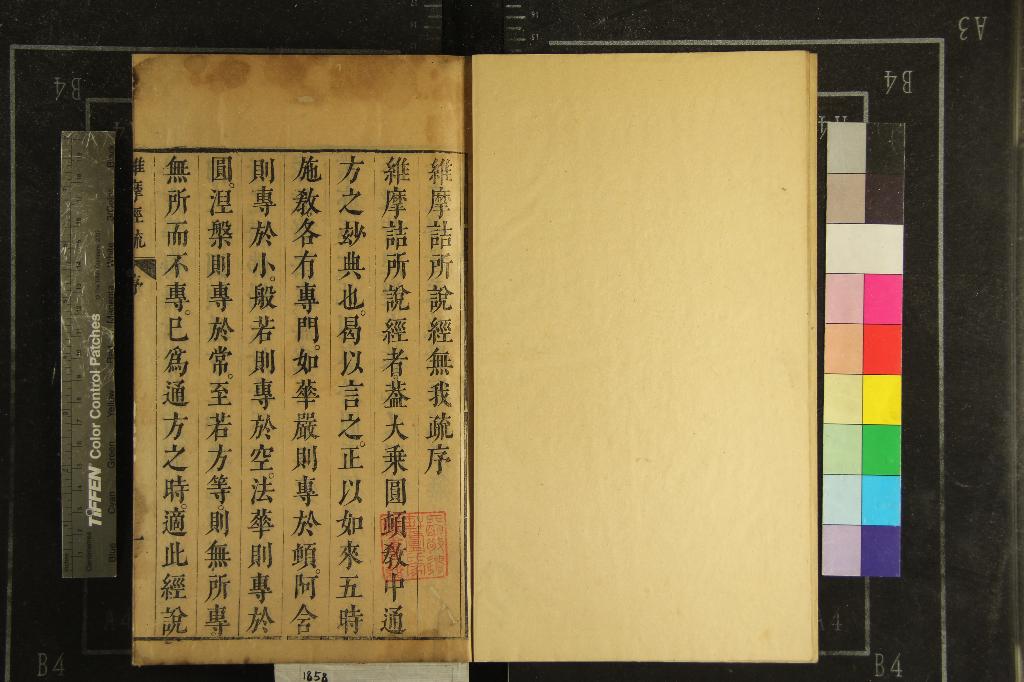 維摩詰所說經無我疏序
維摩詰所說經者葢大乗圓頓敎中通
方之玅典也。曷以言之。正以如來五時
施敎各有專門。如華嚴則專於頓。阿含
則專於小。般若則專於空。法華則專於
圓。涅槃則專於常。至若方等。則無所專
無所而不專。已爲通方之時。適此經說
維摩經疏
序
一
TIFFEN Color Control Patches
B4
B4
A3
B4
B4
A4
1858